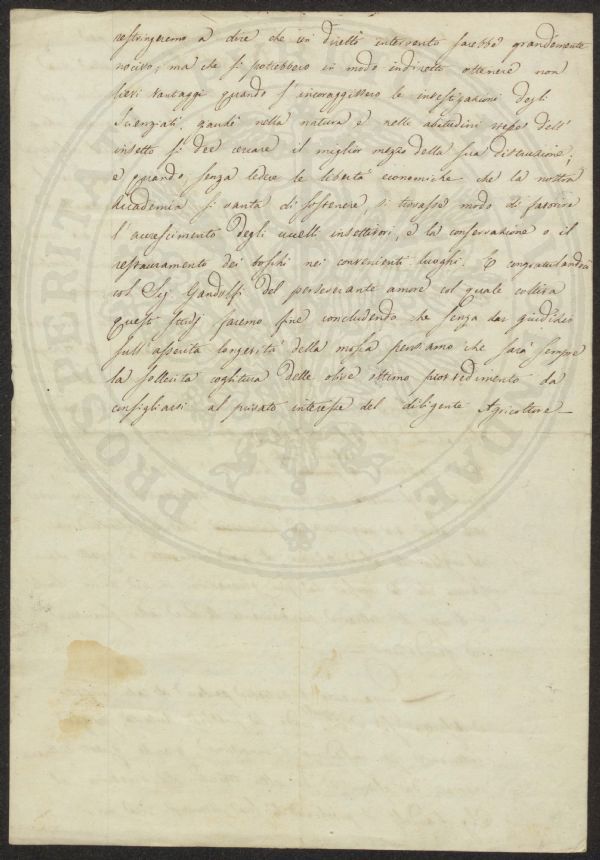 restringeremo a dire che un diretto intervento sarebbe grandemente
nocivo; ma che si potrebbero in modo indiretto ottenere non
lievi vantaggi quando s'incoraggissero le investigazioni degli
Scienziati, nella natura e nelle abitudini stesse dell'
insetto si dee cercare il miglior mezzo della sua distruzione;
e quando, senza ledere le libertà economiche che la nostra
Accademia si vanta di sostenere, si trovasse modo di favorire
l'accrescimento degli uccelli insettivori, e la conservazione o il
restauramento dei boschi nei convenienti luoghi. E congratulandoci
col Sig Gandolfi del perseverante amore col quale coltiva
questi studj faremo fine concludendo che senza dar giudizio
sull'asserita longevità della mosca pensiamo che sarà sempre
la sollecita coglitura delle olive ottimo provvedimento da
consigliarsi al privato interesse del diligente Agricoltore
PROSPERITATI
DAE